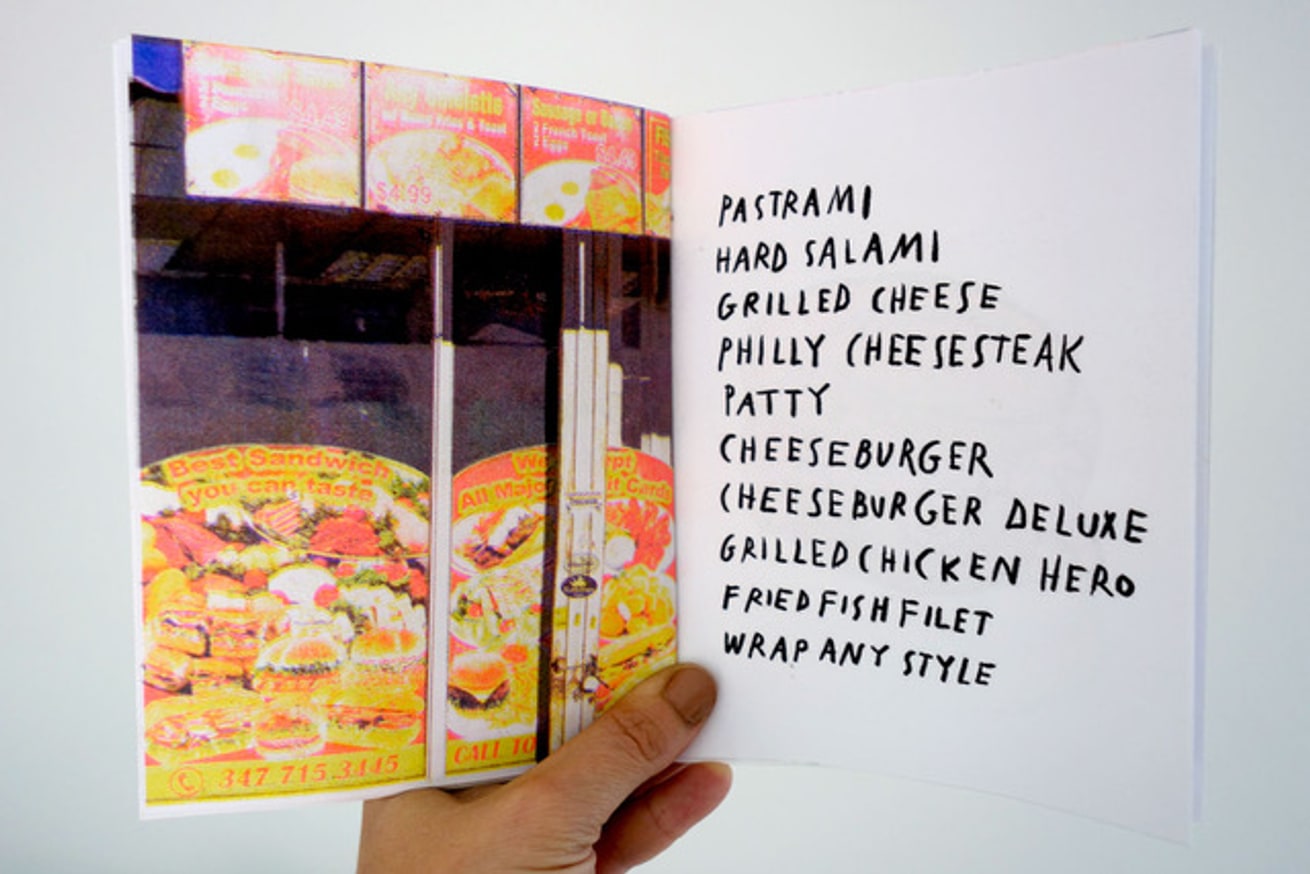 Eggs
w/ Home Fries & Toast
$4.99
Sausage or
2 French Toast
2 Eggs
Best Sandwich
you can taste
We
All Major
it Cards
347 715.3445
CALL TO
PASTRAMI
HARD SALAMI
GRILLED CHEESE
PHILLY CHEESESTEAK
PATTY
CHEESEBURGER
CHEESEBURGER DELUXE
GRILLED CHICKEN HERO
FRIED FISH FILET
WRAP ANY STYLE